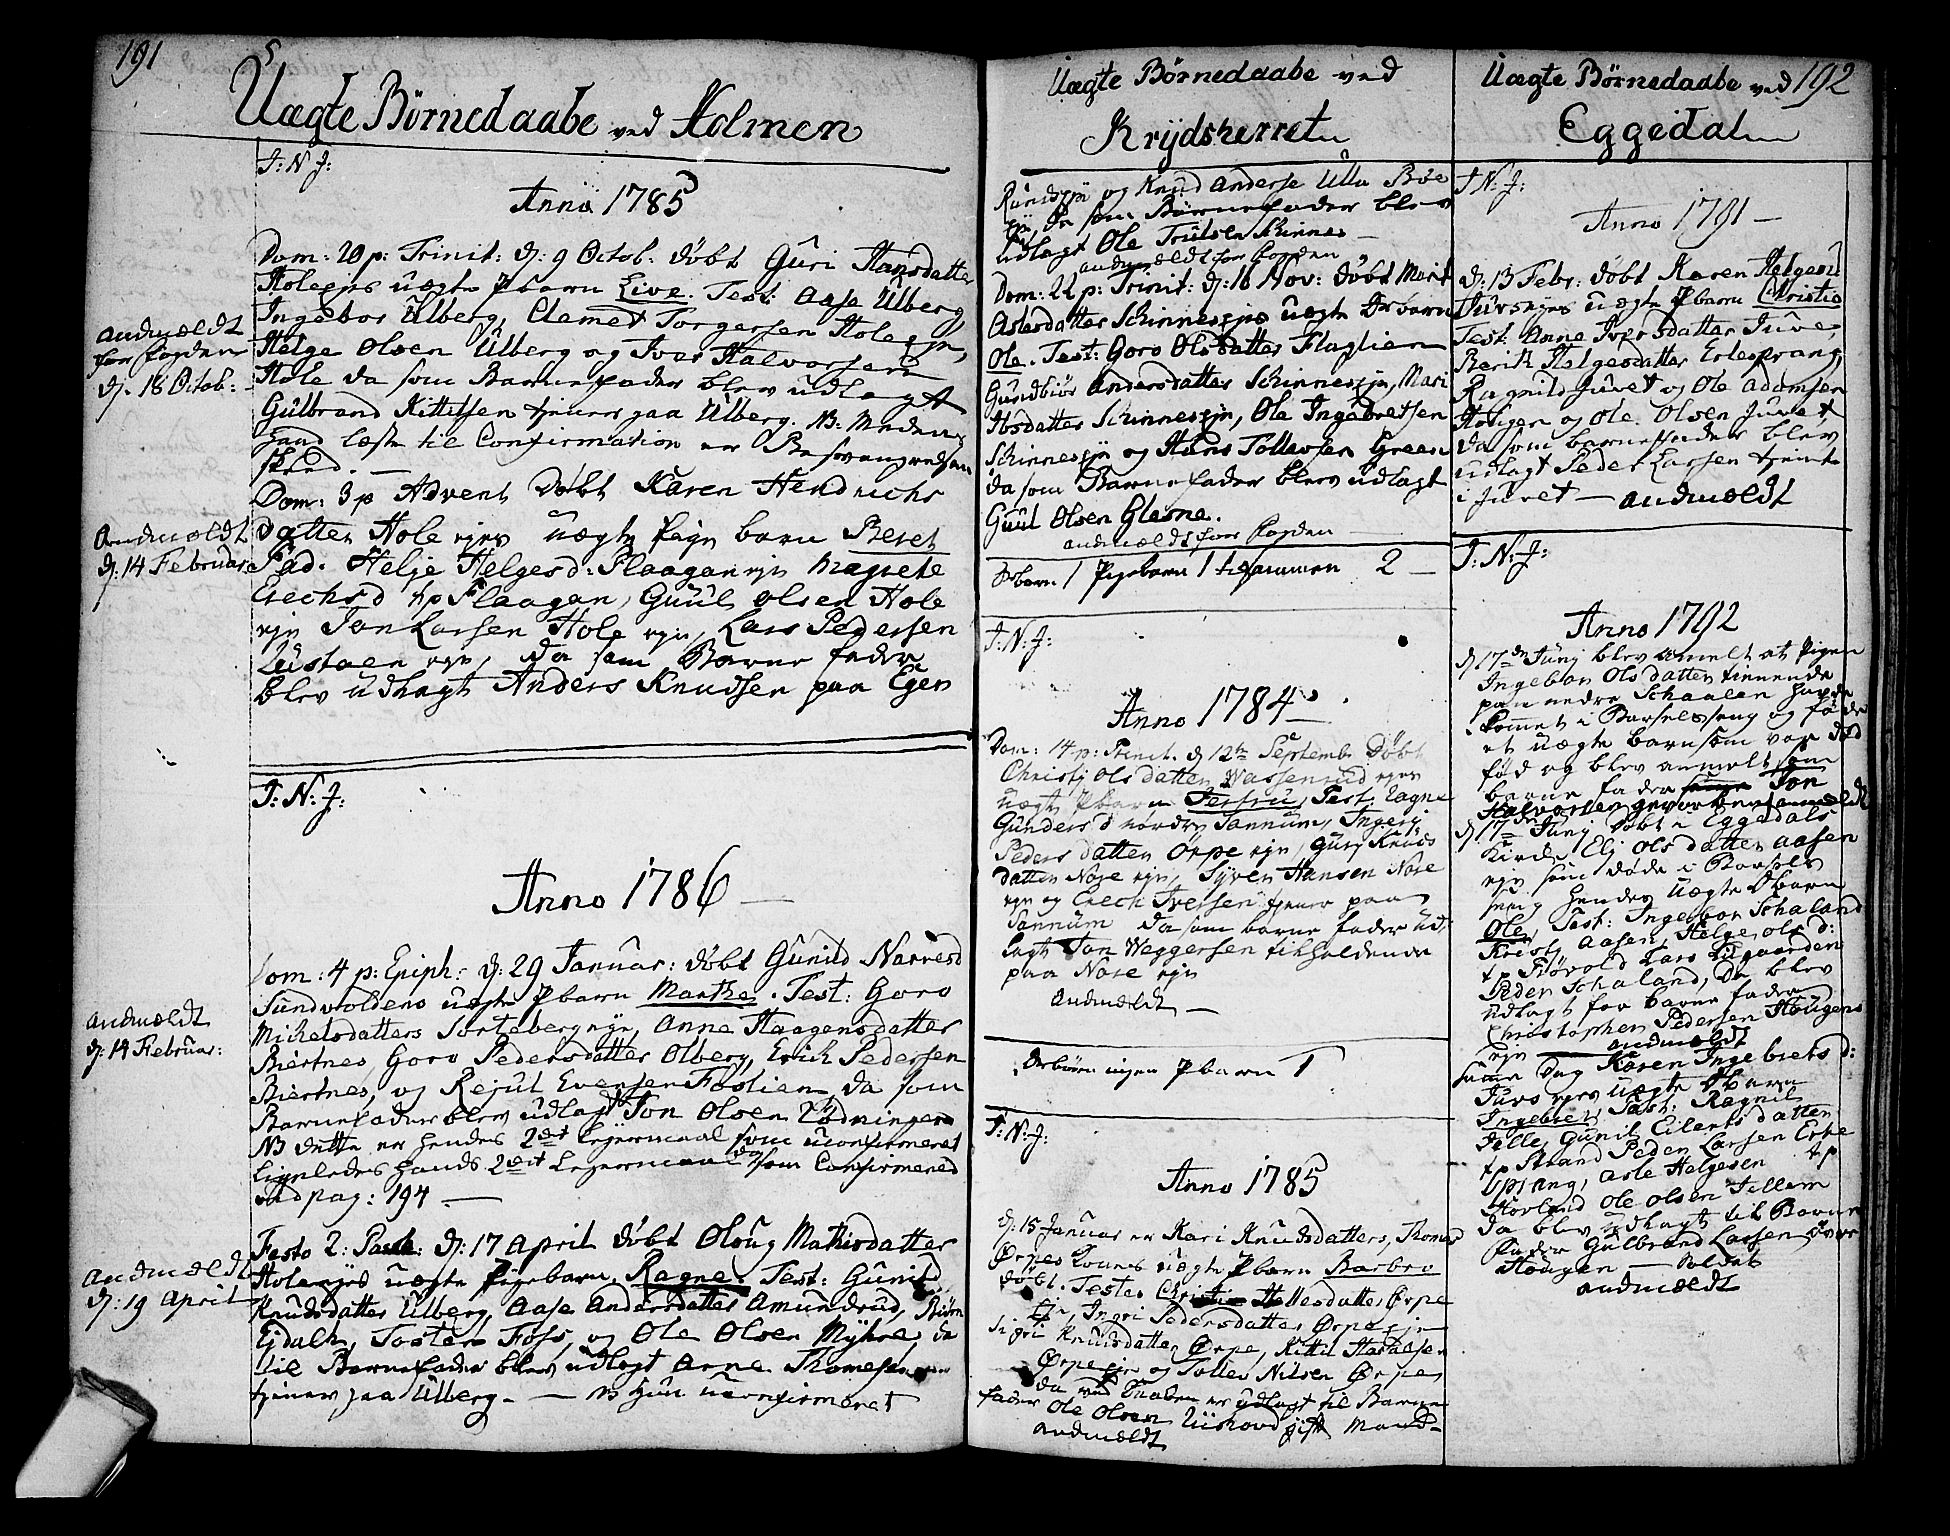 191
Uægte Børnedaabe ved Holmen
J: N: J:
Anno 1785
Dom: 20 p: Trinit: d: 9 Octob: døbt Guri Hansdatter
Holeejes uægte Pbarn Live. Test: Aase Ulberg,
Ingebor Ulberg, Clemet Torgersen Holeeje,
Helge Olsen Ulberg og Iver Halvorsen
Hole da som Barnefader blev udlagt
Gulbrand Kittilsen tjener paa Ulberg. NB: Meden
hand læste til Confirmation er Besvangredsen
skeed. —
andmældt
for fogden
d. 18 Octob:
Dom: 3 p Advent døbt Karen Hendrichs
datter Hole ejes uægte pige barn Beret
Fad. Helje Helgesd: Flaagan eje Magrete
Erechsd tp Flaagan, Guul Olsen Hole
eje Jon Larsen Hole eje, Lars Pedersen
eje, da som Barne fader
blev udlagt Anders Knudsen paa Egen
Andmældt
d: 14 Februar
J: N: J:
Anno 1786 —
Dom: 4 p: Epiph: d: 29 Januar: døbt Gunild Narvesd
Sundvoldens uægte Pbarn Marthe. Test: Goro
Michelsdatter Sortebergeje, Anne Haagensdatter
Biertnes Goro Pedersdatter Olberg, Erich Pedersen
Biertnes, og Rejul Evensen Foslien da som
Barnefader blev udlagt Jon Olsen
NB dette er hendes 2det Lejermaal som uconfirmeret
Ligeledes hands 2det Lejermaal som Confirmered
vid pag: 194 —
andmældt
d: 14 Februar:
Festo 2: Pasch: d: 17 April døbt Oloug Mathisdatter
Holeejes uægte Pigebarn Ragne. Test: Gunild
Knudsdatter Ulberg, Aase Andersdatter Amundrud, Biørn
Ejdalh, Tosten Foss, og Ole Olsen Myhre, da
til Barnefader blev udlagt Arne Thomesen
tjener paa Ulberg. — NB hun uconfirmeret
andmældt
d: 19 April
Uægte Børnedaabe ved
Krydsherret
og Knud Anderse Ulla Bøe
da som Børnefader blev
udlagt Ole Trulsen Skinnes —
andmældt for fogden
Dom: 22 p: Trinit: d: 16 Nov: døbt Marit
Aslesdatter Schinnesejes uægte Drbarn
Ole. Test: Goro Olsdatter Flaglien
Gundbiør Andersdatter Schinneseje, Mari
Ibsdatter Schinneseje, Ole Ingebretsen
Schinneseje og Hans Tollevsen Green
da som Barnefader blev udlagt
Guul Olsen Glesne.
andmældt for fogden —
Drbarn 1 Pigebarn 1 tilsammen 2 —
J: N: J:
Anno 1784 —
Dom: 14 p: Trinit. d 12te Septembr Døbt
Christj Ols datter Wassenrud ejes
uægte Pbarn, Test: Lagne
Gunders d nordre Sannum, Ingerj
Peders datter Orpe eje, Gurj Knuds
datter Nose eje, Syver Hansen Nose
eje og Erech Iversen tjener paa
Sannum da som barne fader ud,
lagt Jon Weggersen tilholdende
paa Nose eje
Andmældt —
Drbørn ingen Pbarn 1
J: N: J:
Anno 1785
d: 15 Januar er Kari Knudsdatter, Thomes
Ørpes Kones uægte Pbarn Barbro
døbt. Testes Christie Hellesdatter Ørpe
Eje, Ingri Pedersdatter Ørpeeje
Sigri Knudsdatter Ørpe, Kittil
Ørpeeje og Tolles Nilsen Ørpe,
da ved Daaben er udlagt til Barne
fader Ole Olsen gift Mand—
andmældt
Uægte Børnedaabe ved 192
Eggedal
J N: J:
Anno 1791 —
d: 13 Febr: døbt Karen Helgesd
Juvsejes uægte Pbarn Christie
Test: Anne Iversdatter Juve,
Berit Helgesdatter Erlesprang,
Ragnild Juvet og Ole Adamsen
Hougen og Ole Olsen Juvet
da som barnefader blev
udlagt Peder Larsen tjente
i Juvet — andmældt
J: N: J:
Anno 1792
d 17de Junj blev anmelt at Pigen
Ingebor Ols datter tinnende
paa nedre Schaalen havde
kommet i Barselseng og fød
et uægte barn som var død
fød og blev anmelt som
barne fader Jon
Halvorsen andmældt
d 17de Junj Døbt i Eggedals
Kirke Elj Ols datter Aasen
eje som døde i Barsels
seng hendes uægte Dbarn
Ole, Test: Ingebor Schaland
Kristi Aasen, Helge Ols d:
tp Fiøvold Lars
Peder Schaland, Da blev
udlagt for barne fader
Christopher Pedersen Hougens
eje — andmældt
samme Dag Karen Ingebrets d:
Juvs ejes uægte Dbarn
Ingebret, Test: Ragnil
Dille, Gunil Eilerts datter
tp Strand Peder Larsen Erte
sprang, Asle Helgesen tp
Horland Ole Olsen Tellem
Da blev udlagt til Barne
fader Gulbrand Larsen øvre
Hougen — Soldat
andmældt